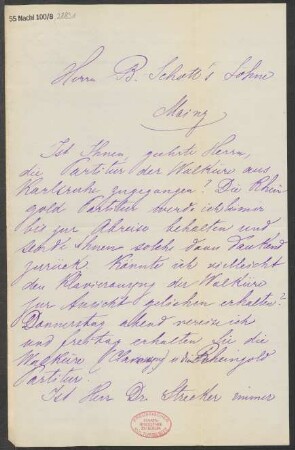 55 Nachl 100/B
Herrn B. Schott's Söhne
Mainz
Ist Ihnen, geehrte Herrn,
die Partitur der Walküre aus
Karlsruhe zugegangen? Die Rhein
gold Partitur werde ich
bis zur Abreise behalten und
Ihnen solche dann dankend
zurück. Könnte ich vielleicht
den Klavierauszug der Walküre
zur Ansicht geliehen erhalten?
Donnerstag abend verreise ich
und Freitag erhalten Sie die
Walküre Rheingold
Partitur.
Ist Herr Dr. Strecker immer